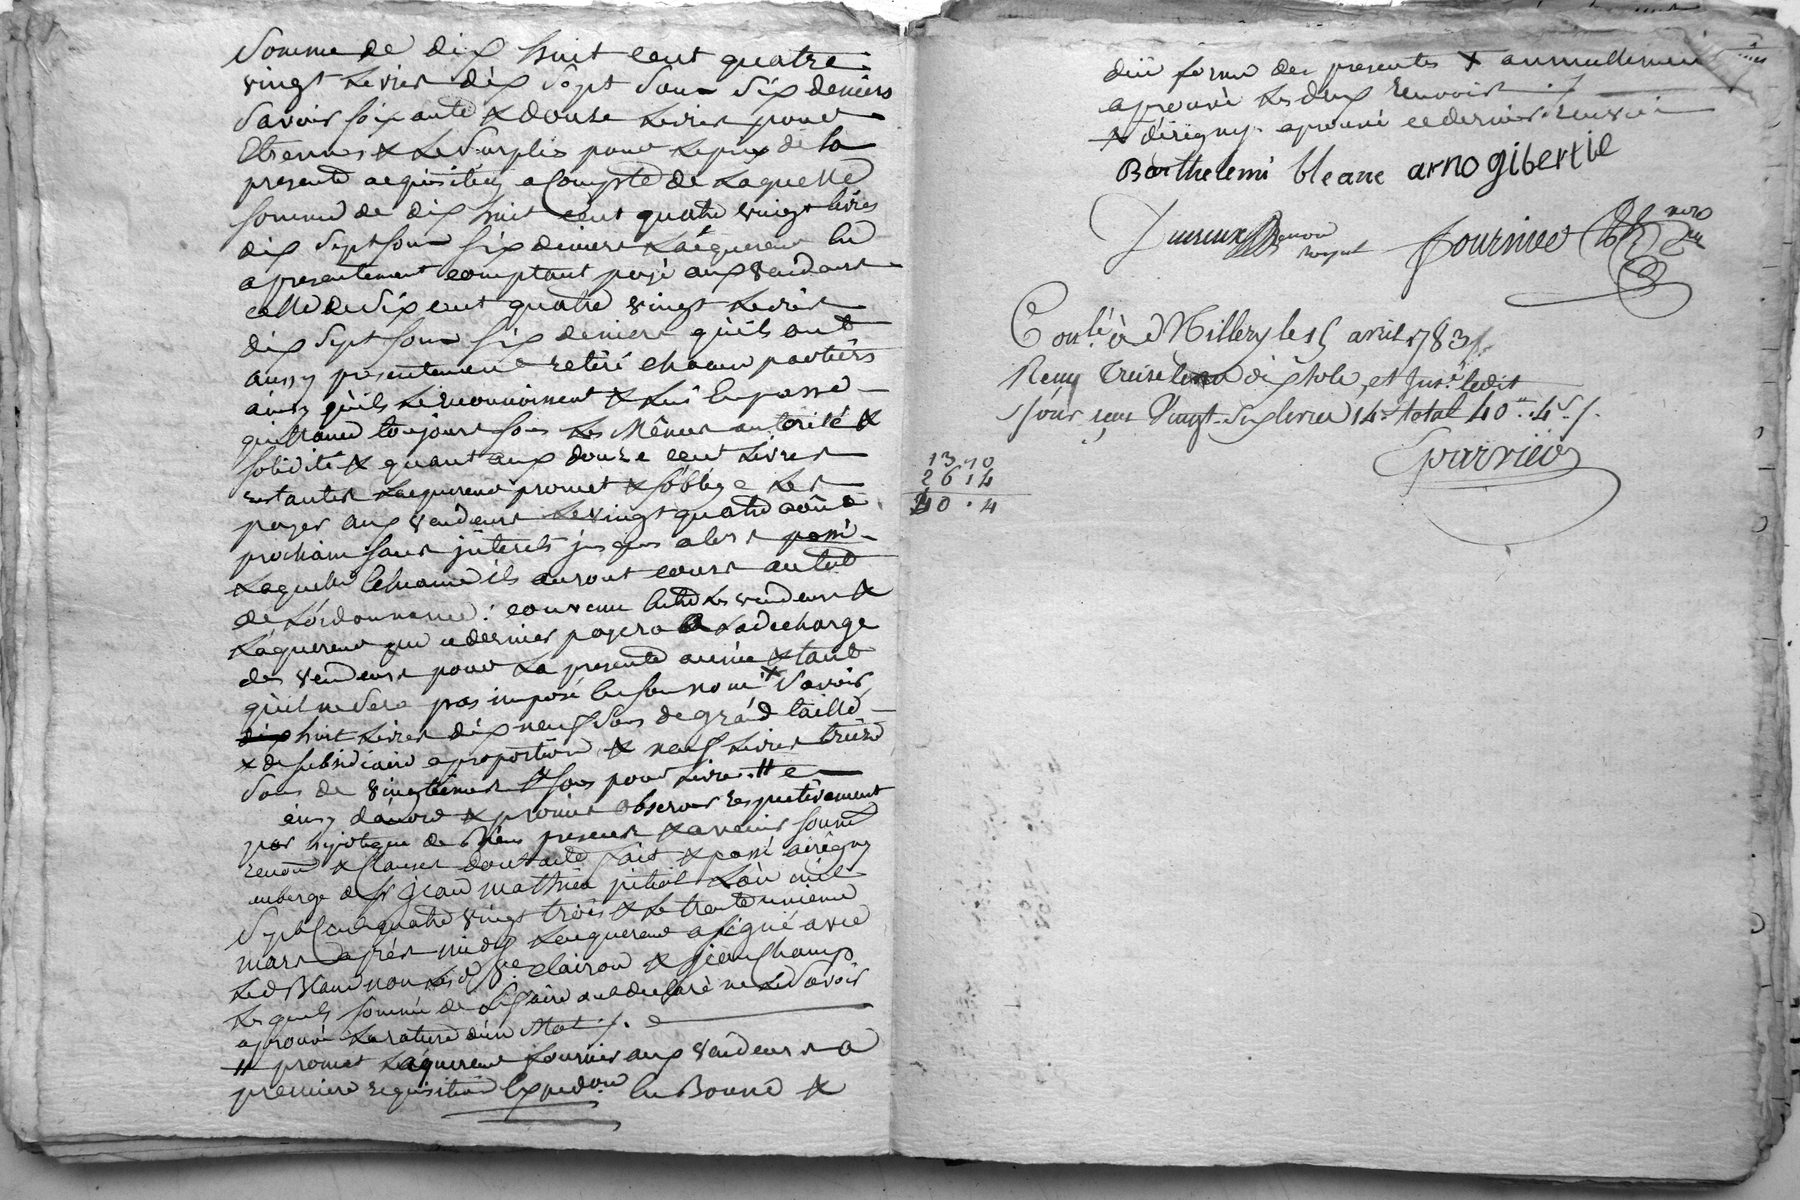 Somme de dix huit cent quatre
vingt Livres dix Sept Sous Six deniers
Savoir soixante & douze Livres pour
Etrennes & Le Surplis pour Le prix de la
presente acquisition a Compte de Laquelle
somme de dix huit cent quatre vingt livres
dix Sept sous six deniers L'aquereur en
a presentement comptant payé aux vendeurs
celle de Six cent quatre vingt Livres
dix Sept sous six deniers qu'ils ont
aussy presentement retiré chacun
ainsy qu'ils Le reconnoissent & Lui En passe
quittance toujours sous Les Mêmes autorité &
solidité & quant aux douze cent Livres
restantes L'aquereur promet & s'oblige Les
payer aux vendeurs Le vingt quatre août
prochain sans jnterets jusques alors passé
Laquelle Echeance ils auront cours au tot
de L'ordonnance : convenu Entre Les vendeurs &
L'aquereur que ce dernier payera a La decharge
des vendeurs pour La presente année & tant
qu'il ne Sera pas imposé En son nom Savoir
dix huit Livres dix neuf Sous de grand taille
& de subsidiaire a proportion & neuf Livres treize
Sous de vingtiemes & sous pour Livres #
ainsy d'acord & promis observer respectivement
par hypoteque de Biens presens & avenir soum
renon & Clauses dont acte fait & passé a irigny
auberge de Sr jean mathieu pitiot L'an mil
Sept Cent quatre vingt trois & Le trente unieme
mars après midy L'aquereur a signé avec
Led Blanc non Les d Ve clairon & jean Champ
Lesquels sommé de Le faire ont declaré ne Le Savoir
aprouvé La rature d'un Mot
# promet L'aquereur fournir aux vendeurs a
premiere requisition Expedon En Bonne &
düe forme des presentes & annuellement
aprouvé Les deux renvois
& d'irigny aprouvé ce dernier renvoi
Barthelemi bleanc arno gibertie
fournier
Conlé à Millery le 15 avril 1783
Reçu Treize livres dix sols, et Jnsé ledit
jour reçu Vingt-Six livres 14s total 40tt. 4s
parrieu
13.10
26 14
40 . 4